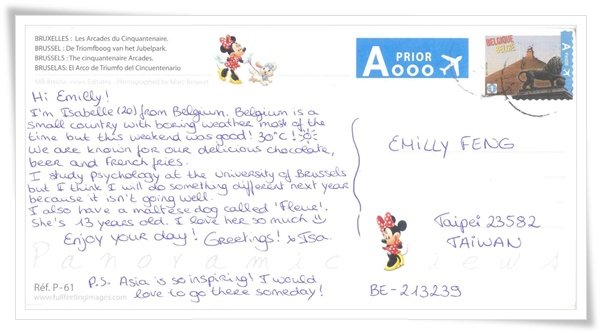 BRUXELLES : Les Arcades du Cinquantenaire.
BRUSSEL : De Triomfboog van het Jubelpark.
BRUSSELS : The cinquantenaire Arcades.
BRUSELAS: El Arco de Triumfo del Cincuentenario
A PRIOR
BELGIQUE
BELGIË
Hi Emilly!
I'm Isabelle (20) from Belgium. Belgium is a
small country with boring weather most of the
time but this weekend was good! 30°C!
We are known for our delicious chocolate,
beer and French fries.
I study Psychology at the university of Brussels
but I think I will do something different next year
because it isn't going well.
I also have a maltese dog called 'Fleur'.
She's 13 years old. I love her so much
Enjoy your day! Greetings! x Isa.
P.S. Asia is so inspiring! I would
love to go there someday!
EMILLY FENG
Taipei 23582
TAIWAN
BE-213239
Panoramic Views
Réf. P-61
www.fullfeelingimages.com